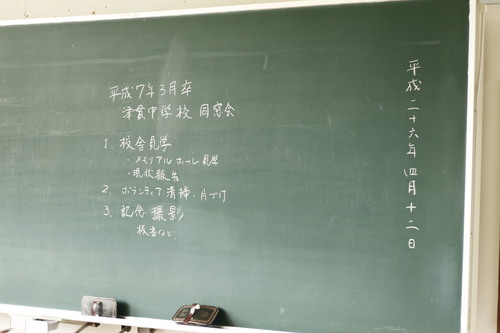 平成二十六年 四月十二日
平成7年3月卒
津貫中学校 同窓会
1. 校舎見学
・メモリアルホール見学
・現状報告
2. ボランティア清掃・片づけ
3. 記念撮影
板書など